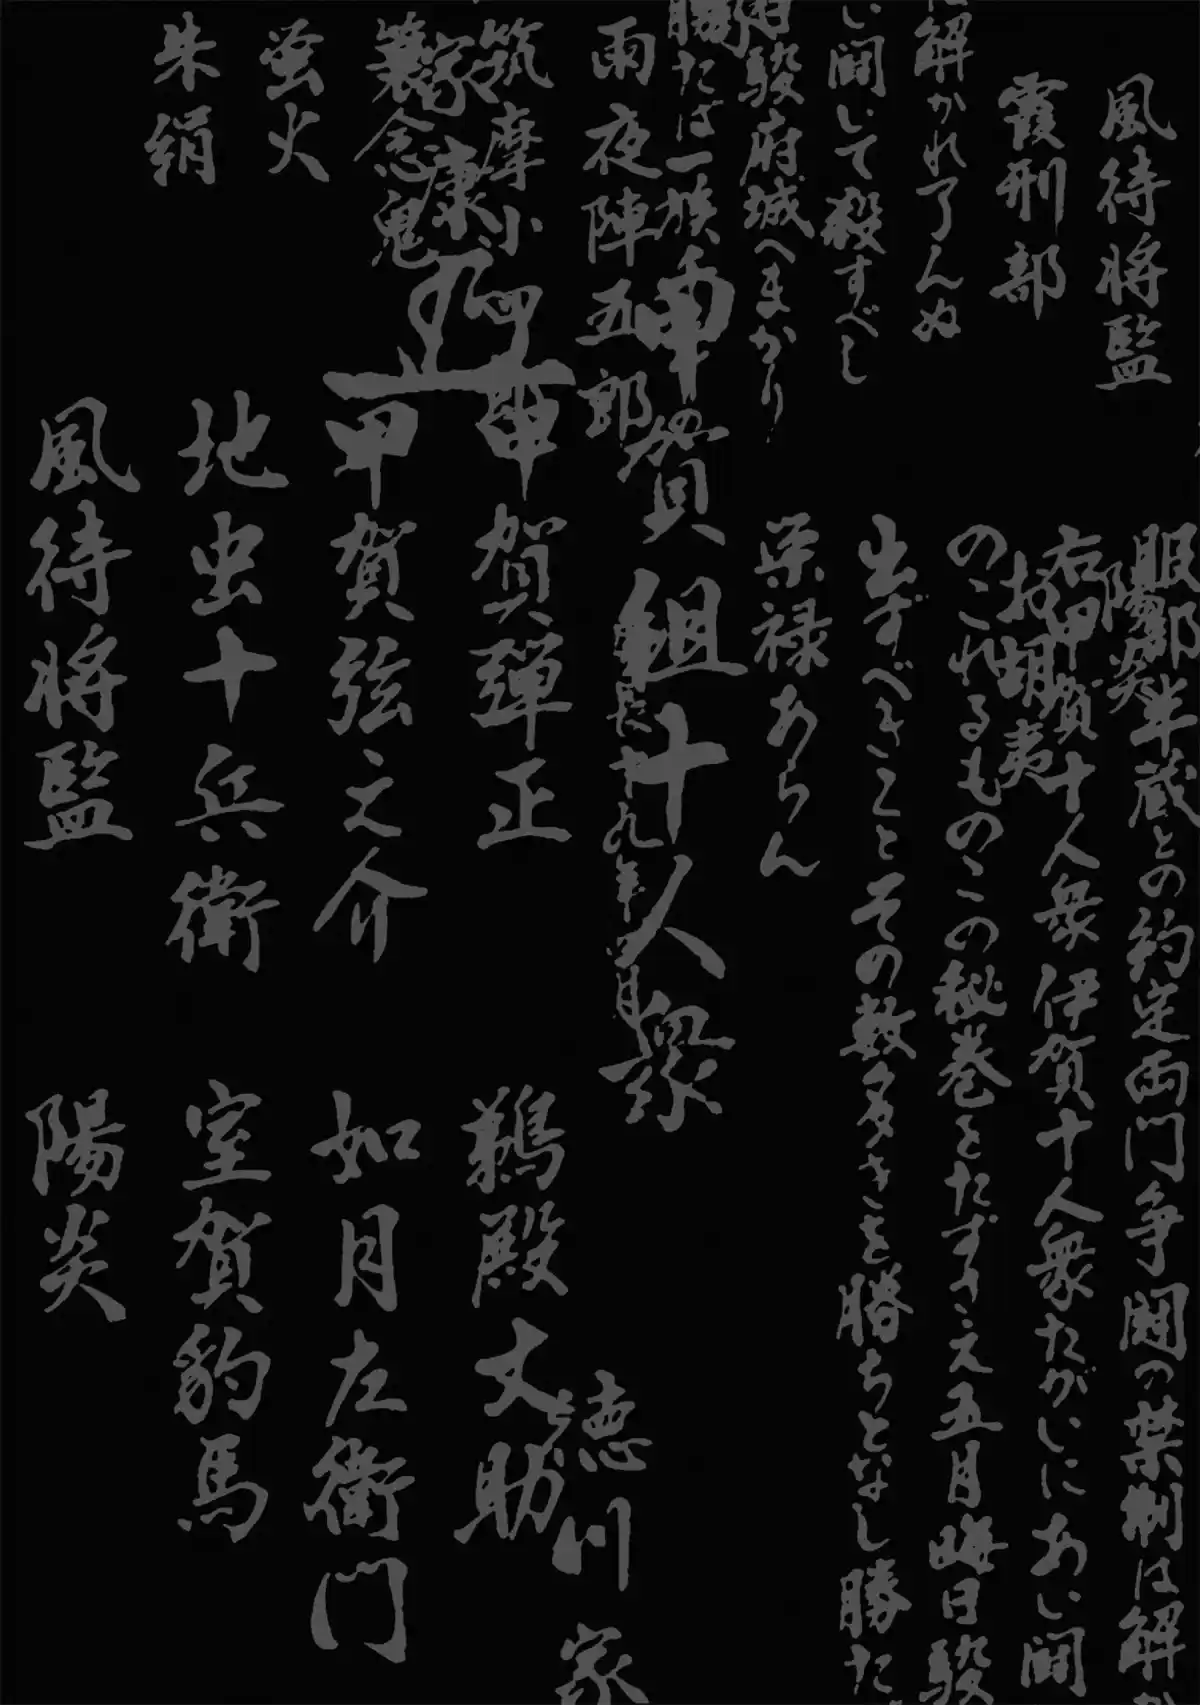 風待将監
霞刑部
に解かれ了んぬ
い闘いて殺すべし
駿府城へまかり
勝たば一族
雨夜陣五郎
筑摩小四
家康
簑念鬼
蛍火
朱絹
服部半蔵との約定両門争闘の禁制は解か
陽炎
お胡夷
右甲賀十人衆伊賀十人衆たがいにあい闘
のこれるものこの秘巻をたずさえ五月晦日駿
出ずべきことその数多きを勝ちとなし勝た
栄禄あらん
甲賀組十人衆
慶長十九年四月
徳川家
甲賀弾正
甲賀弦之介
地虫十兵衛
風待将監
鵜殿丈助
如月左衛門
室賀豹馬
陽炎